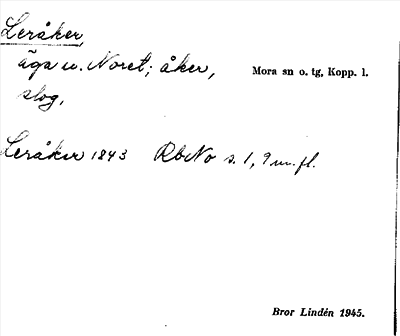 Leråker,
äga u. Noret; åker,
Mora sn o. tg, Kopp. l.
slog.
Leråker 1843 RbNo s. 1, 9 m. fl.
Bror Lindén 1945.